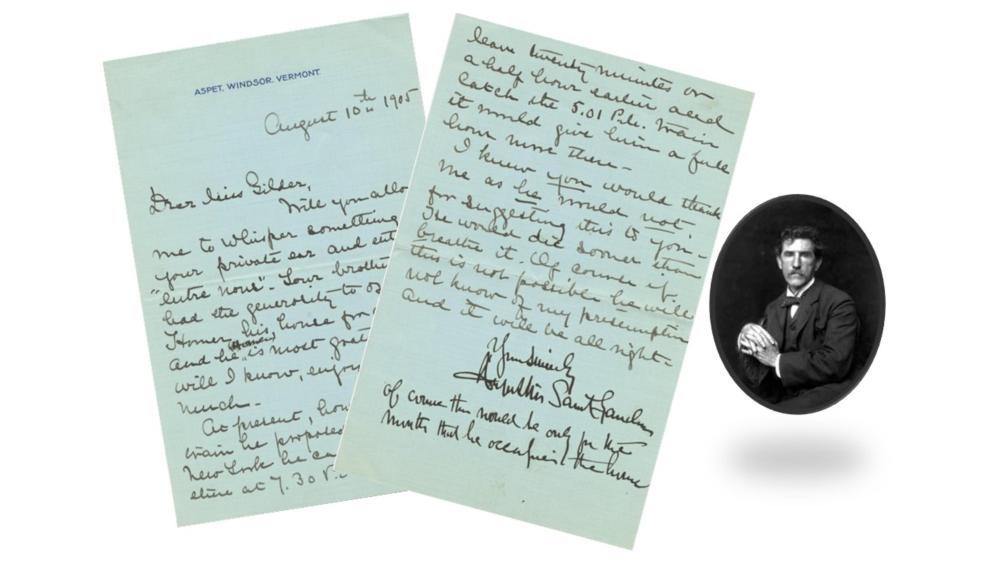 ASPET, WINDSOR, VERMONT.
August 10th 1905
Dear Miss Gilder,
Will you allo
me to whisper something
your private ear and ent
"entre nous". Your brothe
had the generosity to of
Homer his house for
and he (Homer) is most grat
will I know, enjoy
much.
At present, how
train he proposed
New York he ca
there at 7.30 P.
leave twenty minutes or
a half hour earlier and
catch the 5.01 P.M. train
it would give him a full
hour more there—
I know you would thank
me as he would not
for suggesting this to you—
He would die sooner than
breathe it. Of course if
this is not possible he will
not know of my presumption
and it will be all right—
Yours sincerely
Augustus Saint-Gaudens
of course this would be only for the
months that he occupies the house